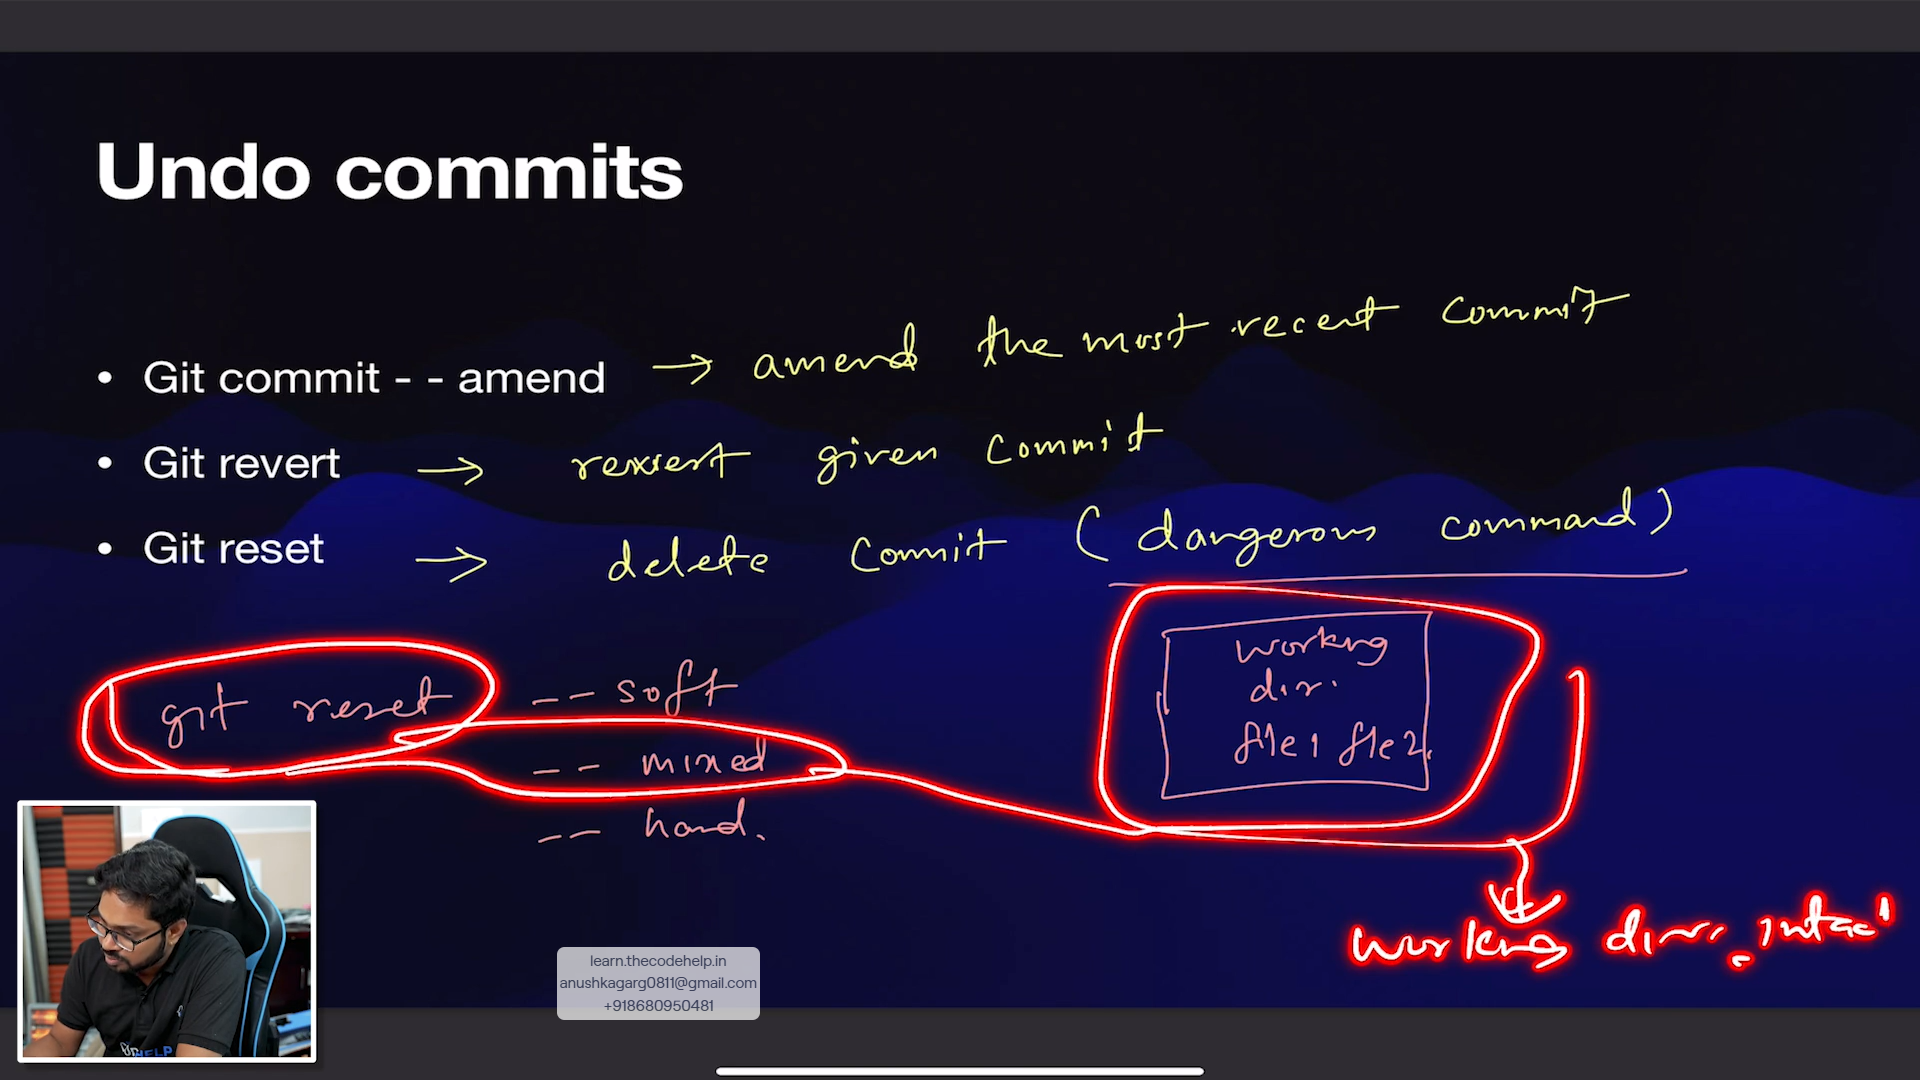 Undo commits
• Git commit - - amend → amend the most recent commit
• Git revert → revert given commit
• Git reset → delete commit (dangerous command)
git reset -- soft
-- mixed
-- hard.
working
dir.
file1 file2.
working dir. intact
learn.thecodehelp.in
anushkagarg0811@gmail.com
+918680950481
HELP